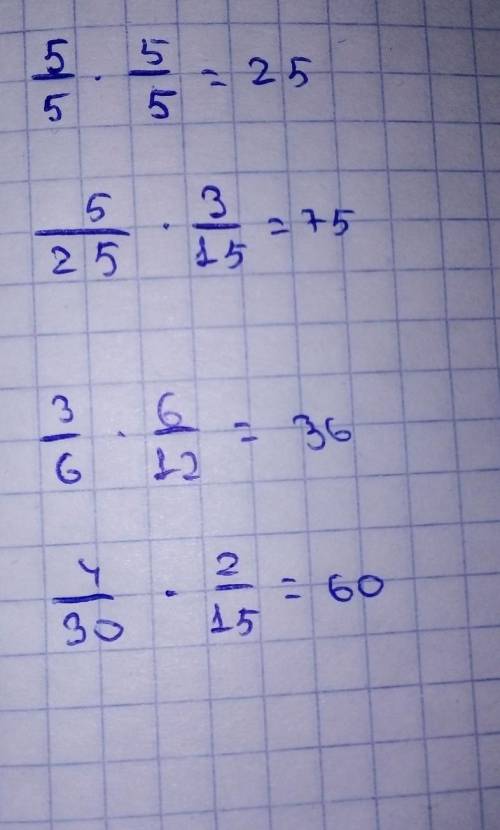 5/5 · 5/5 = 25
5/25 · 3/15 = 75
3/6 · 6/12 = 36
4/30 · 2/15 = 60